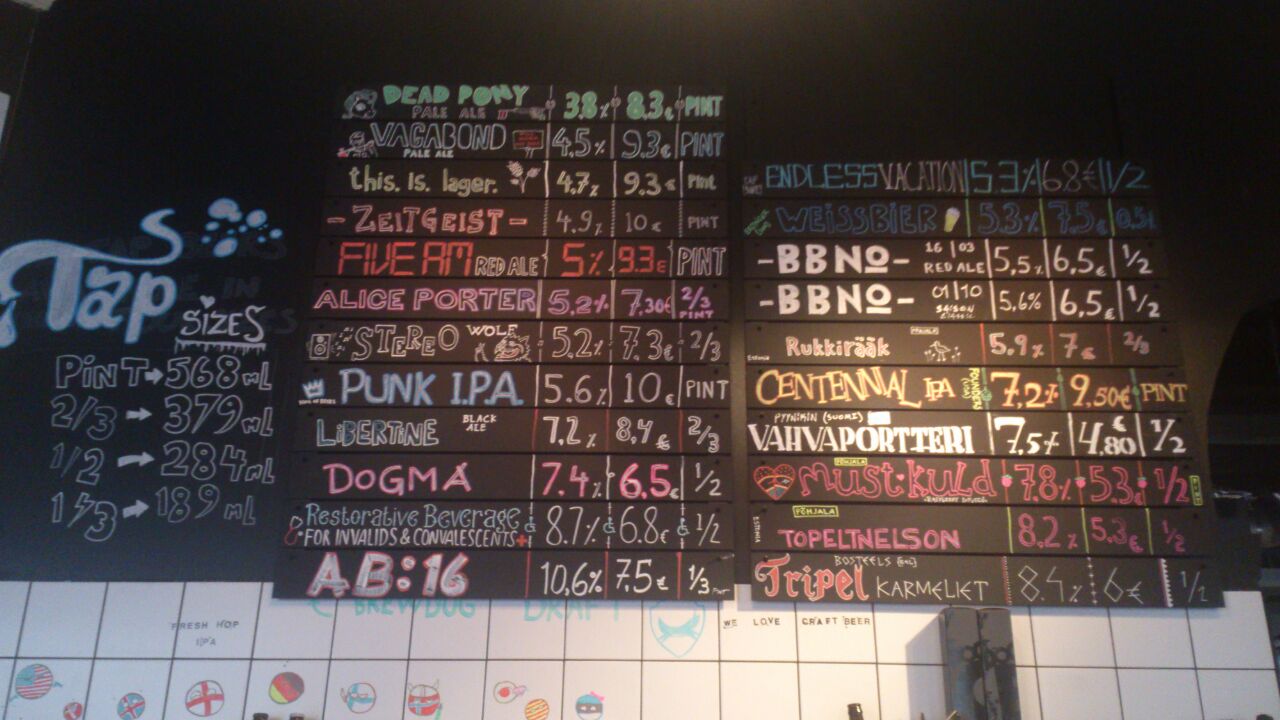 Tap
SIZES
PINT → 568 mL
2/3 → 379 mL
1/2 → 284 mL
1/3 → 189 mL
DEAD PONY PALE ALE 3.8% 8,3€ PINT
VAGABOND PALE ALE 4,5% 9,3€ PINT
this. Is. lager. 4,7% 9,3€ PINT
-ZEITGEIST- 4,9% 10€ PINT
FIVE AM RED ALE 5% 9.3€ PINT
ALICE PORTER 5,2% 7,30€ 2/3 PINT
STEREO WOLF 5,2% 7,3€ 2/3
PUNK I.P.A. 5,6% 10€ PINT
LIBERTINE BLACK ALE 7,2% 8,4€ 2/3
DOGMA 7.4% 6.5€ 1/2
Restorative Beverage FOR INVALIDS & CONVALESCENTS 8.7% 6.8€ 1/2
AB:16 10,6% 7.5€ 1/3
ENDLESS VACATION 5.3% 6.8€ 1/2
WEISSBIER 5,3% 7,5€ 0,5L
-BBNO- 16|03 RED ALE 5,5% 6,5€ 1/2
-BBNO- 01|10 SAISON 5,6% 6,5€ 1/2
Estonia Rukkirääk PÕHJALA 5,9% 7€ 2/3
CENTENNIAL IPA FOUNDERS 7,2% 9,50€ PINT
PYYNIKIN (SUOMI) VAHVAPORTTERI 7,5% 4,80€ 1/2
PÕHJALA MUST KULD 7.8% 5.3€ 1/2
ESTONIA PÕHJALA TOPELTNELSON 8,2% 5.3€ 1/2
BOSTEELS (BEL) Tripel KARMELIET 8.4% 6€ 1/2
BREWDOG DRAFT
WE LOVE CRAFT BEER
FRESH HOP
IPA